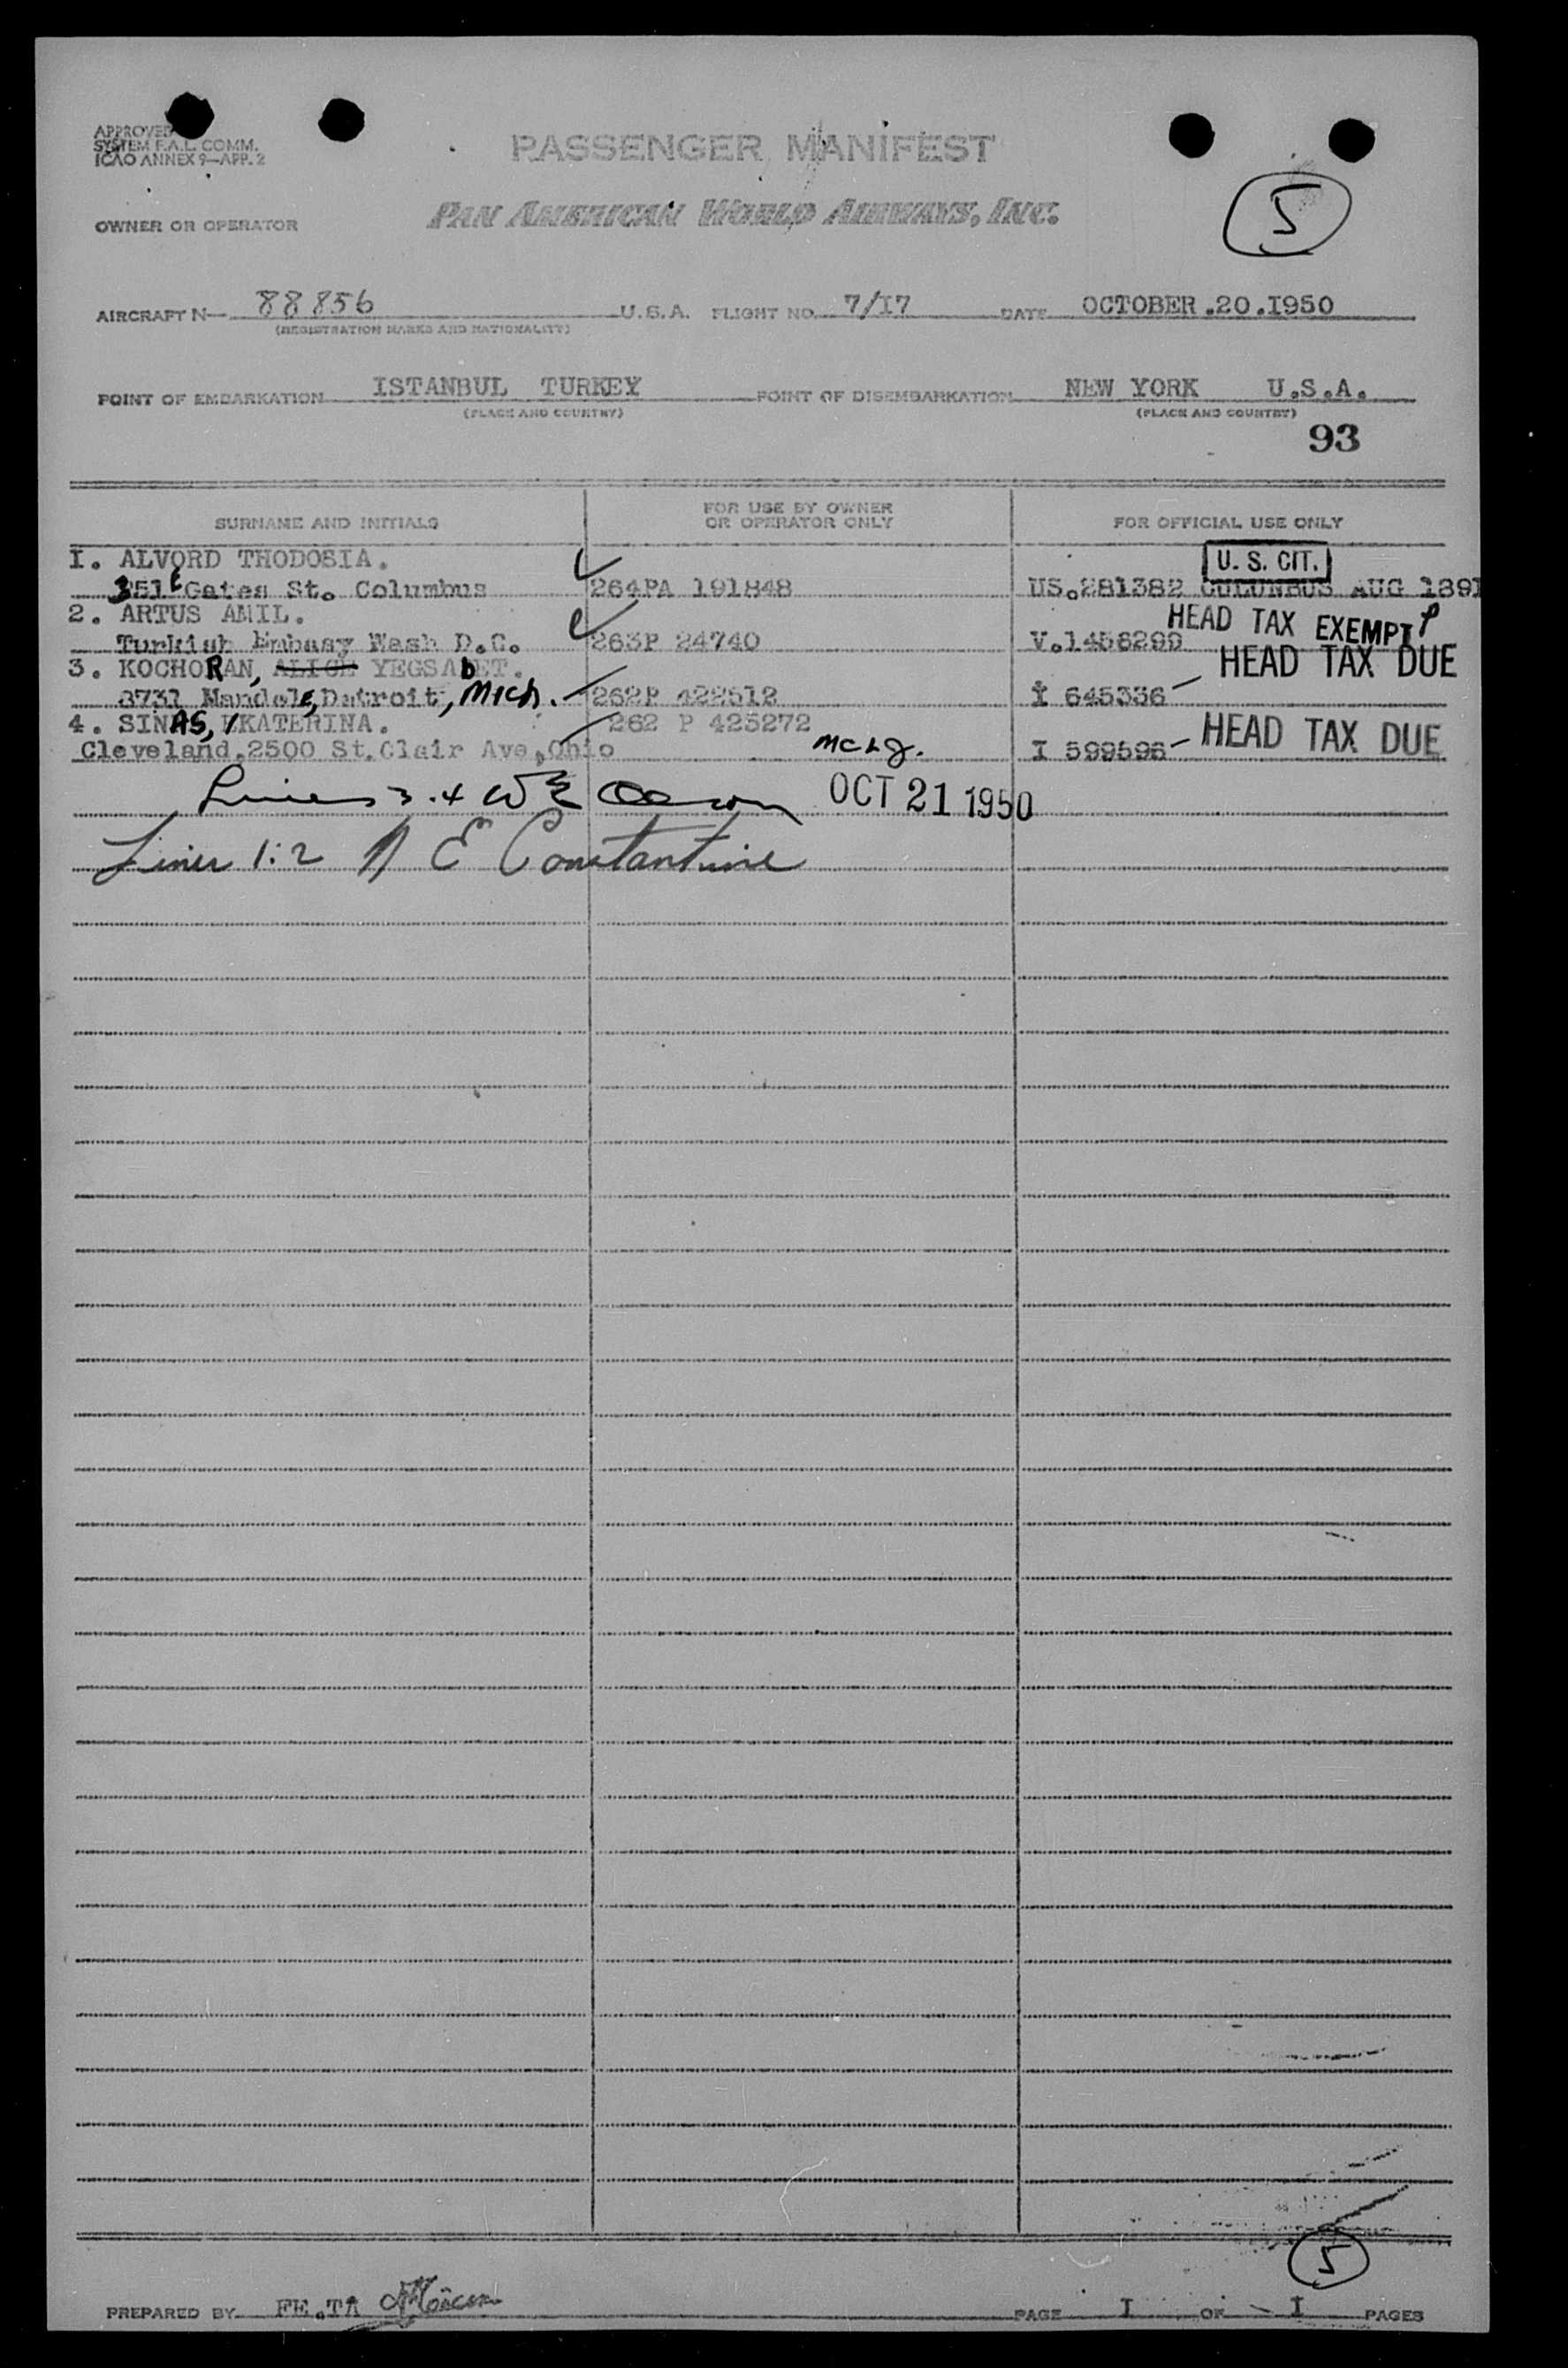 APPROVED
SYSTEM F.A.L. COMM.
ICAO ANNEX 9—APP. 2
PASSENGER MANIFEST
OWNER OR OPERATOR PAN AMERICAN WORLD AIRWAYS, INC.
5
AIRCRAFT N— 88856 U.S.A. FLIGHT NO. 7/I7 DATE OCTOBER .20.I950
(REGISTRATION MARKS AND NATIONALITY)
POINT OF EMBARKATION ISTANBUL TURKEY POINT OF DISEMBARKATION NEW YORK U.S.A.
(PLACE AND COUNTRY) (PLACE AND COUNTRY)
93
SURNAME AND INITIALS FOR USE BY OWNER OR OPERATOR ONLY FOR OFFICIAL USE ONLY
I. ALVORD THODOSIA. U. S. CIT.
351 E Gates St. Columbus 264PA 191848 US.281382 COLUNBUS AUG 1891
2. ARTUS AMIL. HEAD TAX EXEMPT
Turkish Embasy Wash D.C. 263P 24740 V.1456299
3. KOCHORAN, ALICE YEGSABET. HEAD TAX DUE
8731 Mandale, Detroit, Mich. 262P 422512 I 645336
4. SINAS, EKATERINA. 262 P 425272 HEAD TAX DUE
Cleveland.2500 St.Clair Ave,Ohio I 599596
Lines 3.4 OCT 21 1950
Lines 1:2 N E Constantine
5
PREPARED BY FE.TA PAGE I OF I PAGES